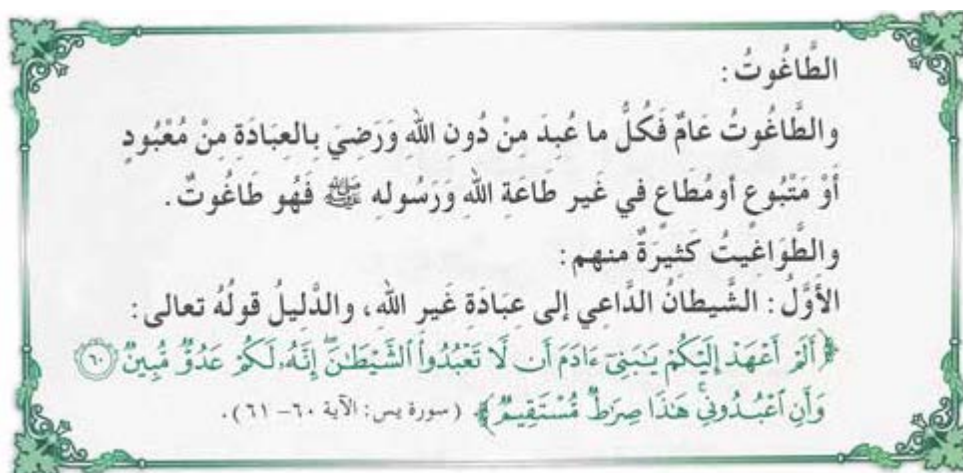 الطَّاغُوتُ:
والطَّاغُوتُ عَامٌ فَكُلُّ ما عُبِدَ مِنْ دُونِ اللهِ وَرَضِيَ بِالعِبَادَةِ مِنْ مُعْبُودٍ
أَوْ مَتْبُوعٍ أومُطَاعٍ في غَيرِ طَاعَةِ اللهِ وَرَسُولِهِ ﷺ فَهُو طَاغُوتٌ.
والطَّوَاغِيتُ كَثِيرَةٌ منهم:
الأَوَّلُ: الشَّيطانُ الدَّاعِي إلى عِبَادَةِ غَيرِ اللهِ، والدَّلِيلُ قولُهُ تعالى:
﴿أَلَمْ أَعْهَدْ إِلَيْكُمْ يَـٰبَنِىٓ ءَادَمَ أَن لَّا تَعْبُدُوا۟ ٱلشَّيْطَـٰنَ ۖ إِنَّهُۥ لَكُمْ عَدُوٌّ مُّبِينٌ ٦٠
وَأَنِ ٱعْبُدُونِى ۚ هَـٰذَا صِرَٰطٌ مُّسْتَقِيمٌ﴾ (سورة يس: الآية ٦٠- ٦١).